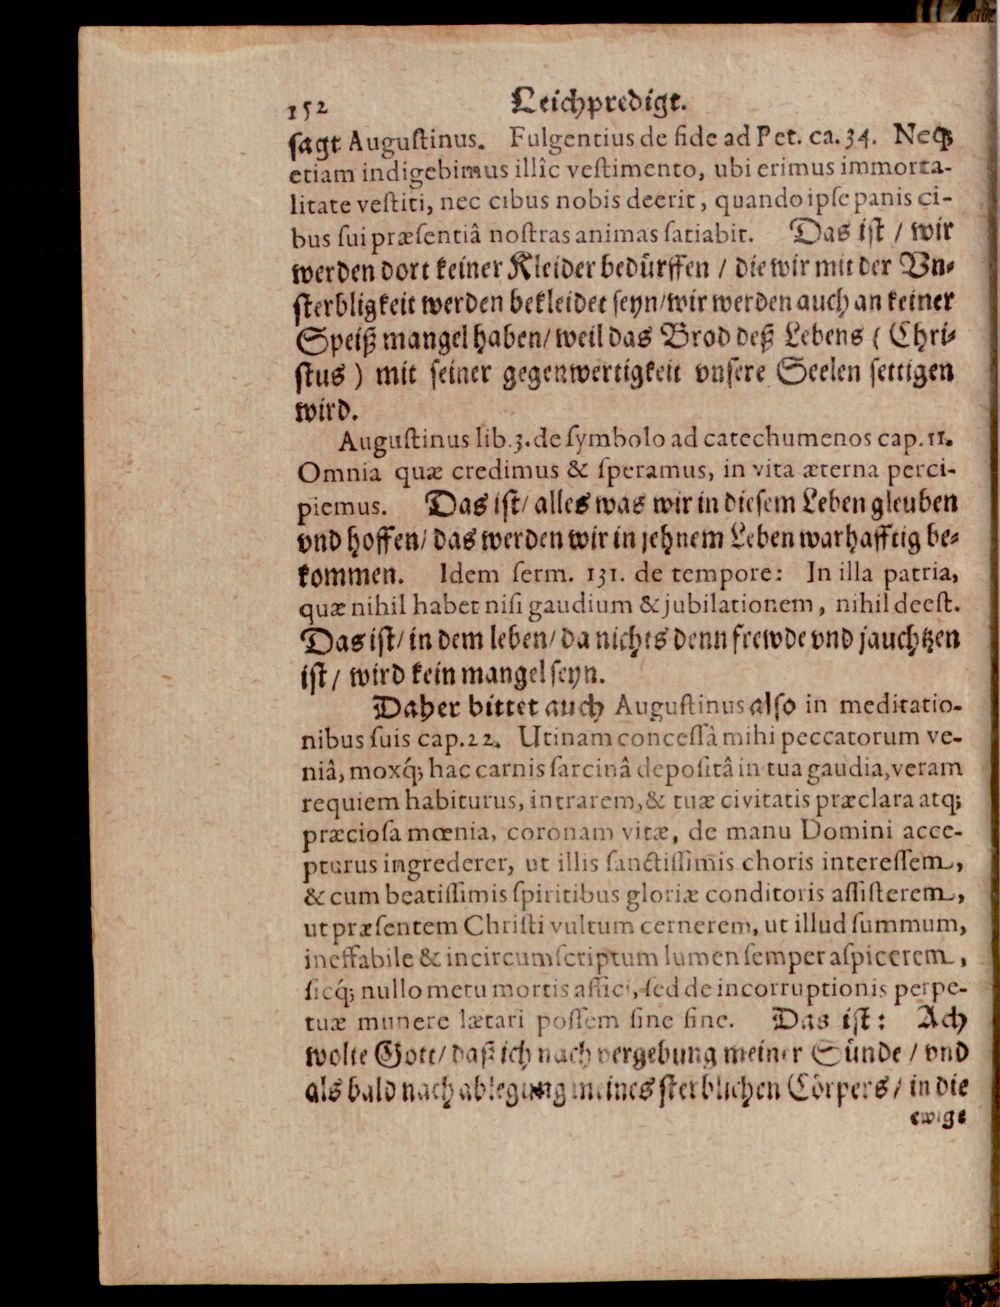 152 Leichpredigt.
sagt Augustinus. Fulgentius de fide ad Pet. ca. 34. Neq;
etiam indigebimus illîc vestimento, ubi erimus immorta-
litate vestiti, nec cibus nobis deerit, quando ipse panis ci-
bus sui præsentiâ nostras animas satiabit. Das ist / wir
werden dort keiner Kleider bedürffen / die wir mit der Vn-
sterbligkeit werden bekleidet seyn/ wir werden auch an keiner
Speiß mangel haben/ weil das Brod deß Lebens ( Chri-
stus ) mit seiner gegenwertigkeit vnsere Seelen settigen
wird.
Augustinus lib. 3. de symbolo ad catechumenos cap. 11.
Omnia quæ credimus & speramus, in vita æterna perci-
piemus. Das ist/ alles was wir in diesem Leben gleuben
vnd hoffen/ das werden wir in jehnem Leben warhafftig be-
kommen. Idem serm. 131. de tempore: In illa patria,
quæ nihil habet nisi gaudium & jubilationem, nihil deest.
Das ist/ in dem leben/ da nichts denn frewde vnd jauchtzen
ist/ wird kein mangel seyn.
Daher bittet auch Augustinus also in meditatio-
nibus suis cap. 22. Utinam concessâ mihi peccatorum ve-
niâ, moxq́; hac carnis sarcinâ depositâ in tua gaudia, veram
requiem habiturus, intrarem, & tuæ civitatis præclara atq;
præciosa mœnia, coronam vitæ, de manu Domini acce-
pturus ingrederer, ut illis sanctissimis choris interessem,
& cum beatissimis spiritibus gloriæ conditoris assisterem,
ut præsentem Christi vultum cernerem, ut illud summum,
ineffabile & incircumscriptum lumen semper aspicerem,
sicq́; nullo metu mortis affici, sed de incorruptionis perpe-
tuæ munere lætari possem sine fine. Das ist: Ach
wolte Gott/ daß ich nach vergebung meiner Sünde / vnd
als bald nach ablegung meines sterblichen Cörpers/ in die
ewige